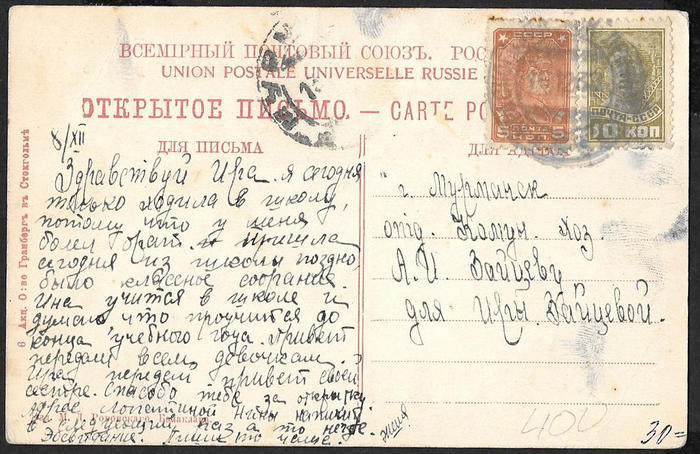 ВСЕМІРНЫЙ ПОЧТОВЫЙ СОЮЗЪ. РОС
UNION POSTALE UNIVERSELLE RUSSIE
ОТКРЫТОЕ ПИСЬМО. — CARTE PO
ДЛЯ ПИСЬМА
ДЛЯ АДРЕСА
СССР
ПОЧТА
5 КОП 5
ПОЧТА-СССР
10 КОП
8/XII
Здравствуй Ира. я сегодня
только ходила в школу,
потому что у меня
болел брат. я пришла
сегодня из школы поздно,
было классное собрание.
Ина учится в школе и
думаю что проучится до
конца учебного года. Привет
передай всем девочкам.
Ира передай привет своей
сестре. Спасибо тебе за открытку
Нины напишу
в следующий раз а то негде.
Пиши по чаще.
г. Мурманск
отд. Комун. хоз.
А. И Зайцеву
для Иры Зайцевой.
6 Акц. О-во Гранбергъ въ Стокгольмѣ
400
30=